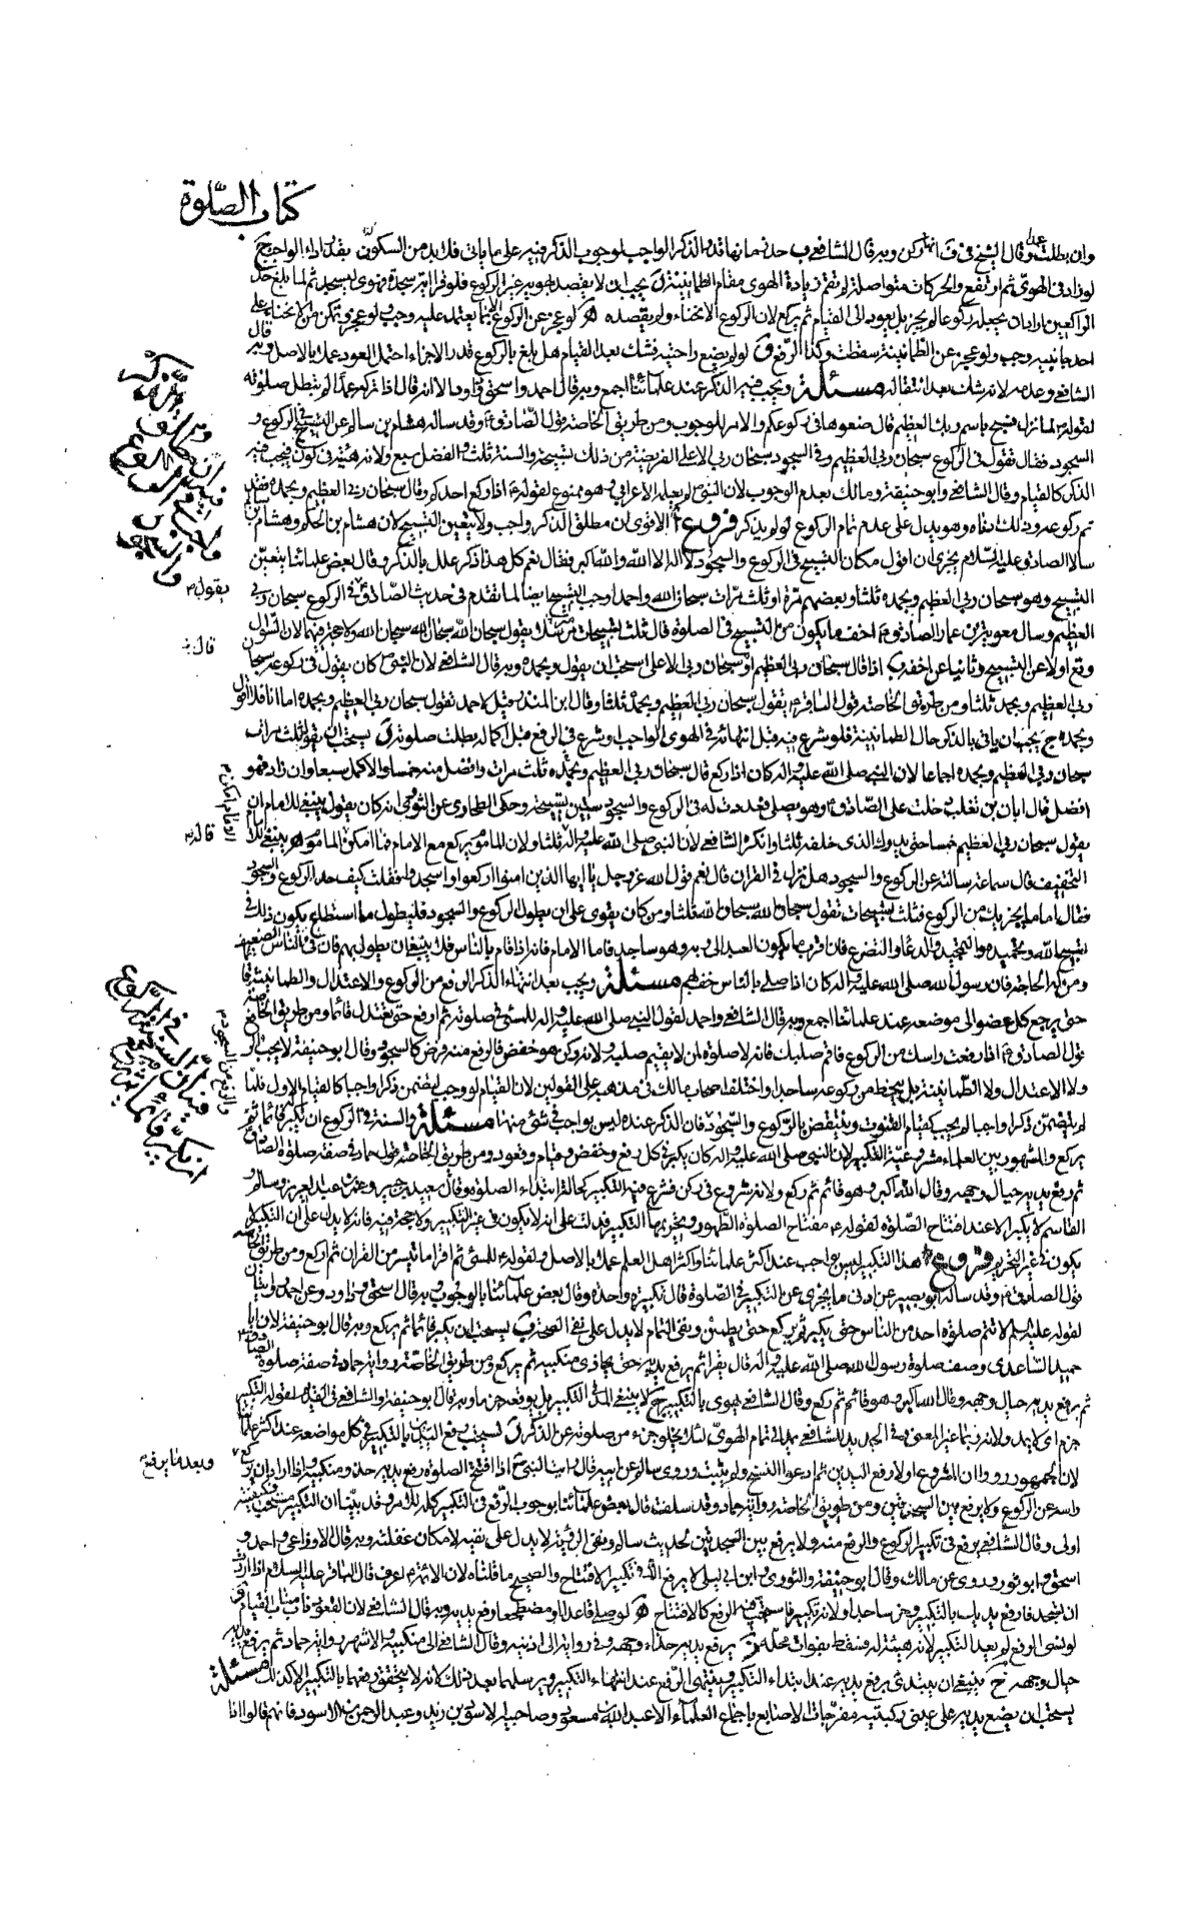 كتاب الصّلوة
وان بطلت وقال الشيخ في ف انها ركن وبه قال الشافعي ب حد زمانها قدر الذكر الواجب لوجوب الذكر فيه على ما ياتي فلا بد من السكون بقدر اداء الواجب ج
لو زاد في الهوى ثم ارتفع والحركات متواصلة لم تقم زيادة الهوى مقام الطمانينة د يجب ان لا يقصد بهويه غير الركوع فلو قرأ اية سجدة فهوى ليسجد ثم لما بلغ حد
الراكعين اراد ان يجعله ركوعا لم يجز بل يعود الى القيام ثم يركع لان الركوع الانحناء ولم يقصده ه لو عجز عن الركوع الا بما يعتمد عليه وجب ولو عجز وتمكن من الانحناء على
احد جانبيه وجب ولو عجز عن الطمانينة سقطت وكذا الرفع و لو لم يضع راحتيه فشك بعد القيام هل بلغ بالركوع قدر الاجزاء احتمل العود عملا بالاصل وبه قال
الشافعي وعدمه لانه شك بعد انتقاله مسئلة ويجب فيه الذكر عند علمائنا اجمع وبه قال احمد واسحق وداود الا انه قال اذا تركه عمدا لم تبطل صلوته
لقوله لما نزل فسبح باسم ربك العظيم قال ضعوها في ركوعكم والامر للوجوب ومن طريق الخاصة قول الصّادق ع وقد ساله هشام بن سالم عن التسبيح في الركوع و
السجود فقال تقول في الركوع سبحان ربي العظيم وفي السجود سبحان ربي الاعلى الفريضة من ذلك تسبيحة والسنة ثلث والفضل سبع ولانه هيئة في كون فيجب فيه
الذكر كالقيام وقال الشافعي وابو حنيفة ومالك بعدم الوجوب لان النبي ص لم يعلمه الاعرابي وهو ممنوع لقوله ع اذا ركع احدكم وقال سبحان ربي العظيم وبحمده فقد
تم ركوعه وذلك ادناه وهو يدل على عدم تمام الركوع لو لم يذكر فروع ا الاقوى ان مطلق الذكر واجب ولا يتعين التسبيح لان هشام بن الحكم وهشام بن سالم
سالا الصادق عليه السّلام يجزي ان اقول مكان التسبيح في الركوع والسجود لا اله الا الله والله اكبر فقال نعم كل هذا ذكر علل بالذكر وقال بعض علمائنا بتعين
التسبيح وهو سبحان ربي العظيم وبحمده ثلثا وبعضهم مرة او ثلث مرات سبحان الله واحمد اوجب التسبيح ايضا لما تقدم في حديث الصّادق ع في الركوع سبحان ربي
العظيم وسال معوية بن عمار الصادق ع اخف ما يكون من التسبيح في الصلوة قال ثلث تسبيحات مترسلا يقول سبحان الله سبحان الله سبحان الله ولا حجة فيهما لان السّؤال
وقع اولا عن التسبيح وثانيا عن اخفه ب اذا قال سبحان ربي العظيم او سبحان ربي الاعلى استحب ان يقول وبحمده وبه قال الشافعي لان النبي ص كان يقول في ركوعه سبحان
ربي العظيم وبحمده ثلثا ومن طريق الخاصة قول الباقر ع يقول سبحان ربي العظيم وبحمده ثلثا وقال ابن المنذر قيل لاحمد تقول سبحان ربي العظيم وبحمده اما انا فلا اقول
وبحمده ج يجب ان ياتي بالذكر حال الطمانينة فلو شرع فيه قبل انتهائه في الهوى الواجب او شرع في الرفع قبل اكماله بطلت صلوته د يستحب ان يقول ثلث مرات
سبحان ربي العظيم وبحمده اجماعا لان النبي صلى الله عليه واله كان اذا ركع قال سبحان ربي العظيم وبحمده ثلث مرات وافضل منه خمسا والاكمل سبعا وان زاد فهو
افضل قال ابان بن تغلب دخلت على الصّادق ع وهو يصلي فعددت له في الركوع والسجود ستين تسبيحة وحكى الطحاوي عن الثوري انه كان يقول ينبغي للامام ان
يقول سبحان ربي العظيم خمسا حتى يدرك الذي خلفه ثلثا وانكره الشافعي لان النبي صلى الله عليه واله قاله ثلثا ولان الماموم يركع مع الامام فما امكن الامام امكن الماموم ه ينبغي للامام
التخفيف قال سماعة سالته عن الركوع والسجود هل نزل في القران قال نعم قول الله عز وجل يا ايها الذين امنوا اركعوا واسجدوا فقلت كيف حد الركوع والسجود
فقال اما ما يجزيك من الركوع فثلث تسبيحات تقول سبحان الله سبحان الله ثلثا ومن كان يقوى على ان يطول الركوع والسجود فليطول ما استطاع يكون ذلك في
تسبيح الله وتحميده والتمجيد والدعاء والتضرع فان اقرب ما يكون العبد الى ربه وهو ساجد فاما الامام فانه اذا قام بالناس فلا ينبغي ان يطول بهم فان في الناس الضعيف
ومن له الحاجة فان رسول الله صلى الله عليه واله كان اذا صلى بالناس خف بهم مسئلة ويجب بعد انتهاء الذكر الرفع من الركوع والاعتدال والطمانينة قائما
حتى يرجع كل عضو الى موضعه عند علمائنا اجمع وبه قال الشافعي واحمد لقول النبي صلى الله عليه واله للمسئ في صلوته ثم ارفع حتى تعتدل قائما ومن طريق الخاصة
قول الصادق ع اذا رفعت راسك من الركوع فاقم صلبك فانه لا صلوة لمن لا يقيم صلبه ولانه ركن هو خفض فالرفع منه فرض كالسجود وقال ابو حنيفة لا يجب الرفع
ولا الاعتدال ولا الطمانينة بل ينحط من ركوعه ساجدا واختلف اصحاب مالك في مذهبه على القولين لان القيام لو وجب لتضمن ذكرا واجبا كالقيام الاول قلنا
لم يتضمن ذكرا واجبا لم يجب كقيام القنوت وينتقض بالركوع والسّجود فان الذكر عنده ليس بواجب في شئ منهما مسئلة والسنة في الركوع ان يكبر قائما ثم
يركع والمشهور بين العلماء مشروعية التكبير لان النبي صلى الله عليه واله كان يكبر في كل رفع وخفض وقيام وقعود ومن طريق الخاصة قول حماد في صفة صلوة الصّادق ع
ثم رفع يديه حيال وجهه وقال الله اكبر وهو قائم ثم ركع ولانه شروع في ركن فشرع فيه التكبير كحالة ابتداء الصلوة وقال سعيد بن جبير وعمر بن عبد العزيز وسالم و
القاسم لا يكبر الا عند افتتاح الصّلوة لقوله ع مفتاح الصلوة الطهور وتحريمها التكبير فدلت على انه لا يكون في غير التكبير ولا حجة فيه فانه لا يدل على ان التكبير لا
يكون في غير التحريم فروع ا هذا التكبير ليس بواجب عند اكثر علمائنا واكثر اهل العلم عملا بالاصل ولقوله ع للمسئ ثم اقرا ما تيسر من القران ثم اركع ومن طريق الخاصة
قول الصادق ع وقد ساله ابو بصير عن ادنى ما يجزي عن التكبير في الصّلوة قال تكبيرة واحدة وقال بعض علمائنا بالوجوب وبه قال اسحق وداود وعن احمد روايتان
لقوله عليه السلم لا تتم صلوة احد من الناس حتى يكبر ثم يركع حتى يطمئن ونفي التمام لا يدل على نفي الصحة ب يستحب ان يكبر قائما ثم يركع وبه قال ابو حنيفة لان ابا
حميد الساعدي وصف صلوة رسول الله صلى الله عليه واله قال يقرا ثم يرفع يديه حتى يحاذي منكبيه ثم يركع ومن طريق الخاصة رواية حماد في صفة صلوة الصادق ع
ثم رفع يديه حيال وجهه وقال الله اكبر وهو قائم ثم ركع وقال الشافعي يهوي بالتكبير ج لا ينبغي المد في التكبير بل يوقعه جزما وبه قال ابو حنيفة والشافعي في القديم لقوله ع التكبير
جزم اي لا يمد ولانه ربما غير المعنى وفي الجديد للشافعي يمد الى تمام الهوي لئلا يخلو جزء من صلوته عن الذكر د يستحب رفع اليدين بالتكبير في كل مواضعه عند اكثر علمائنا
لان الجمهور رووا ان المشروع اولا رفع اليدين ثم ادعوا النسخ ولم يثبت وروى سالم عن ابيه قال رايت النبي ص اذا افتتح الصلوة رفع يديه حذو منكبيه واذا اراد ان يركع
راسه من الركوع ولا يرفع بين السجدتين ومن طريق الخاصة رواية حماد وقد سلفت قال بعض علمائنا بوجوب الرفع في التكبير كله للامر وقد بيّنا ان التكبير مستحب فكيفيته
اولى وقال الشافعي يرفع في تكبير الركوع والرفع منه ولا يرفع بين السجدتين لحديث سالم ونفي الرؤية لا يدل على نفيه لامكان غفلته وبه قال الاوزاعي واحمد و
اسحق وابو ثور وروي عن مالك وقال ابو حنيفة والثوري وابن ابي ليلى لا يرفع الا في تكبيرة الافتتاح والصحيح ما قلناه لان الائمة ع اعرف قال الباقر عليه السلام اذا اردت
ان تسجد فارفع يديك بالتكبير وخر ساجدا ولانه تكبير فاستحب فيه الرفع كالافتتاح ه لو صلى قاعدا او مضطجعا رفع يديه وبه قال الشافعي لان القعود ناب مناب القيام و
لو نسي الرفع لم يعد التكبير لانه هيئة له فسقط بفوات محله ز يرفع يديه حذاء وجهه وفي رواية الى اذنيه وقال الشافعي الى منكبيه والاشهر رواية حماد ثم يرفع يديه
حيال وجهه ح ينبغي ان يبتدي برفع يديه عند ابتداء التكبير وينتهي الرفع عند انتهاء التكبير ويرسلهما بعد ذلك لانه لا يتحقق رفعهما بالتكبير الا كذلك مسئلة
يستحب ان يضع يديه على عيني ركبتيه مفرجات الاصابع باجماع العلماء الا عبد الله بن مسعود وصاحبيه الاسود بن زيد وعبد الرحمن بن الاسود فانهم قالوا اذا
بقوله ع
قال
قاله
وبعد ما يرفع